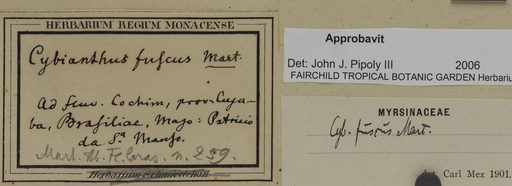 HERBARIUM REGIUM MONACENSE
Cybianthus fuscus Mart.
Ad fluv. Cochim, prov. Cuya-
ba, Brasiliae, Majo: Patricio
da Sª Manso.
Mart. Hb. Fl. bras. n. 259.
Herbarium Schmiedelian
Approbavit
Det: John J. Pipoly III 2006
FAIRCHILD TROPICAL BOTANIC GARDEN Herbariu
MYRSINACEAE
Cyb. fuscus Mart.
Carl Mez 1901.